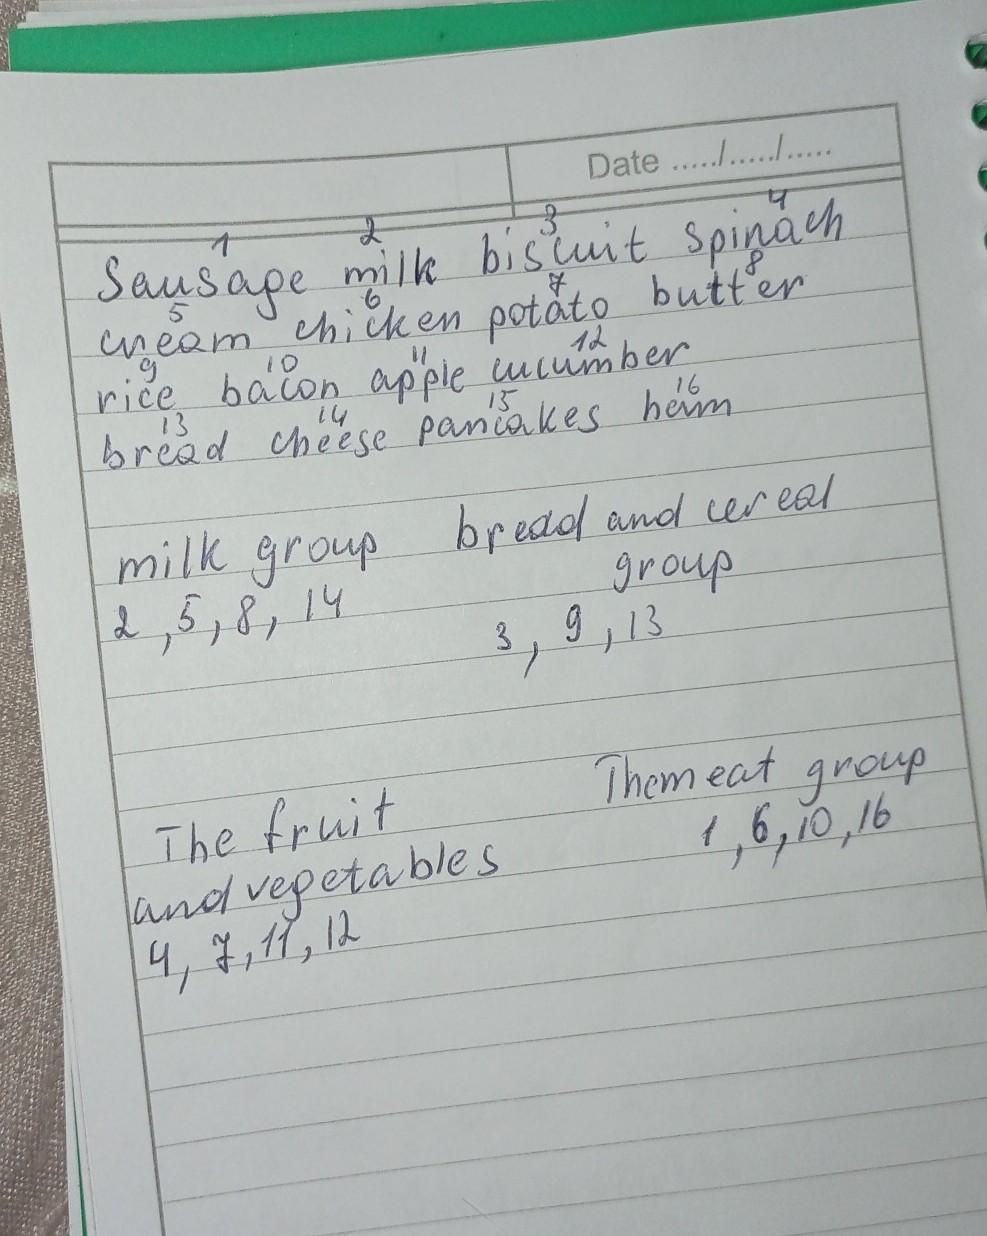 Date ...../...../.....
1 2 3 4
Sausage milk biscuit spinach
5 6 7 8
cream chicken potato butter
9 10 11 12
rice bacon apple cucumber
13 14 15 16
bread cheese pancakes ham
milk group bread and cereal
group
2, 5, 8, 14
3, 9, 13
The fruit
and vegetables
4, 7, 11, 12
The meat group
1, 6, 10, 16